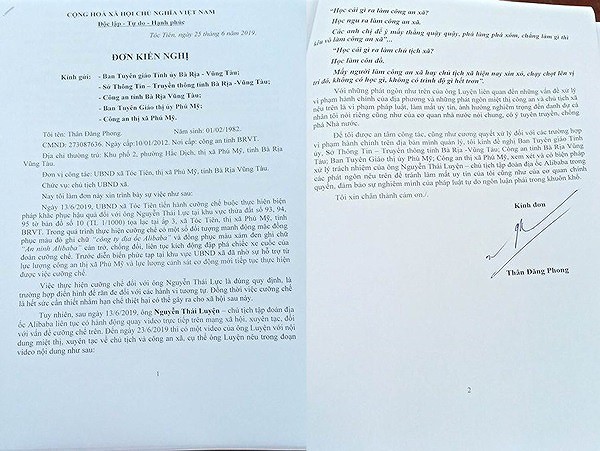 CỘNG HOÀ XÃ HỘI CHỦ NGHĨA VIỆT NAM
Độc lập - Tự do - Hạnh phúc
Tóc Tiên, ngày 25 tháng 6 năm 2019.
ĐƠN KIẾN NGHỊ
Kính gửi: - Ban Tuyên giáo Tỉnh uỷ Bà Rịa - Vũng Tàu;
- Sở Thông Tin – Truyền thông tỉnh Bà Rịa -Vũng Tàu;
- Công an tỉnh Bà Rịa -Vũng Tàu;
- Ban Tuyên Giáo thị ủy Phú Mỹ;
- Công an thị xã Phú Mỹ.
Tôi tên: Thân Đăng Phong. Năm sinh: 01/02/1982.
CMND: 273087636. Ngày cấp:10/01/2012. Nơi cấp: công an tỉnh BRVT.
Địa chỉ thường trú: Khu phố 2, phường Hắc Dịch, thị xã Phú Mỹ, tỉnh Bà Rịa
Vũng Tàu.
Đơn vị công tác: UBND xã Tóc Tiên, thị xã Phú Mỹ, tỉnh Bà Rịa -Vũng Tàu.
Chức vụ: chủ tịch UBND xã.
Nay tôi làm đơn này xin trình bày sự việc như sau:
Ngày 13/6/2019, UBND xã Tóc Tiên tiến hành cưỡng chế buộc thực hiện biện
pháp khắc phục hậu quả đối với ông Nguyễn Thái Lực tại khu vực thửa đất số 93, 94,
95 tờ bản đồ số 10 (TL 1/1000) tọa lạc tại ấp 3, xã Tóc Tiên, thị xã Phú Mỹ, tỉnh
BRVT. Trong quá trình thực hiện cưỡng chế có một số đối tượng manh động mặc đồng
phục màu đỏ ghi chữ "công ty địa ốc Alibaba" và đồng phục màu xám đen ghi chữ
"An ninh Alibaba" cản trở, chống đối, liên tục kích động đập phá chiếc xe cuốc của
đoàn cưỡng chế. Trước diễn biến phức tạp tại khu vực UBND xã đã nhờ sự hỗ trợ từ
lực lượng công an thị xã Phú Mỹ và lực lượng cảnh sát cơ động mới tiếp tục thực hiện
được việc cưỡng chế.
Việc thực hiện cưỡng chế đối với ông Nguyễn Thái Lực là đúng quy định, là
trường hợp điển hình để răn đe đối với các hành vi tương tự. Đồng thời việc cưỡng chế
là hết sức cần thiết nhằm hạn chế thiệt hại có thể gây ra cho xã hội sau này.
Tuy nhiên, sau ngày 13/6/2019, ông Nguyễn Thái Luyện – chủ tịch tập đoàn địa
ốc Alibaba liên tục có hành động quay video trực tiếp trên mạng xã hội, xuyên tạc, đối
với vấn đề cưỡng chế trên. Đến ngày 23/6/2019 thì có một video của ông Luyện với nội
dung miệt thị, xuyên tạc về chủ tịch và công an xã, cụ thể ông Luyện nêu trong đoạn
video nội dung như sau:
1
"Học cái gì ra làm công an xã?
Học ngu ra làm công an xã.
Các anh chị để ý mấy thằng quậy quậy, phá làng phá xóm, chẳng làm gì thì
kêu vô làm công an xã"...
"Học cái gì ra chủ tịch xã?
Học làm côn đồ.
Mấy người làm công an xã hay chủ tịch xã hiện nay xin xỏ, chạy chọt lên vị
trí đó, không có học gì, không có trình độ gì hết trơn".
Với những phát ngôn như trên của ông Luyện liên quan đến những vấn đề xử lý
vi phạm hành chính của địa phương và những phát ngôn miệt thị công an và chủ tịch xã
nêu trên là vi phạm pháp luật, làm mất uy tín, ảnh hưởng nghiêm trọng đến danh dự cá
nhân tôi nói riêng cũng như của cơ quan nhà nước nói chung, có ý tuyên truyền, chống
phá Nhà nước.
Để tôi được an tâm công tác, cũng như cương quyết xử lý đối với các trường hợp
vi phạm hành chính trên địa bàn mình quản lý, tôi kính đề nghị Ban Tuyên giáo Tỉnh
ủy, Sở Thông Tin – Truyền thông tỉnh Bà Rịa -Vũng Tàu; Công an tỉnh Bà Rịa Vũng
Tàu; Ban Tuyên Giáo thị ủy Phú Mỹ; Công an thị xã Phú Mỹ, xem xét và có biện pháp
xử lý trách nhiệm của ông Nguyễn Thái Luyện – chủ tịch tập đoàn địa ốc Alibaba trong
các phát ngôn nêu trên để tránh làm mất uy tín của tôi cũng như của cơ quan chính
quyền, đảm bảo sự nghiêm minh của pháp luật tự do ngôn luận phải trong khuôn khổ.
Tôi xin chân thành cảm ơn./.
Kính đơn
Thân Đăng Phong
2